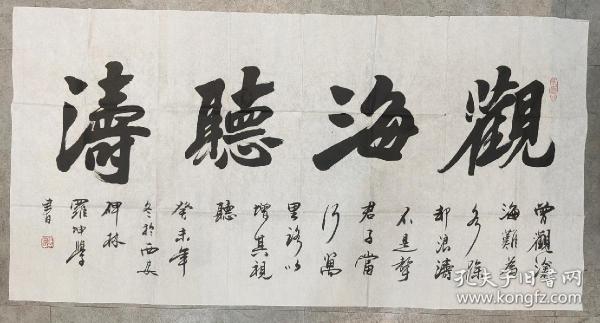 觀海聽濤
曾觀滄
海難為
水除
却浪濤
不是聲
君子當
行萬
里路以
增其視
聽
癸未年
冬於西安
碑林
羅坤學
書
孔夫子旧书网
www.kongfz.com